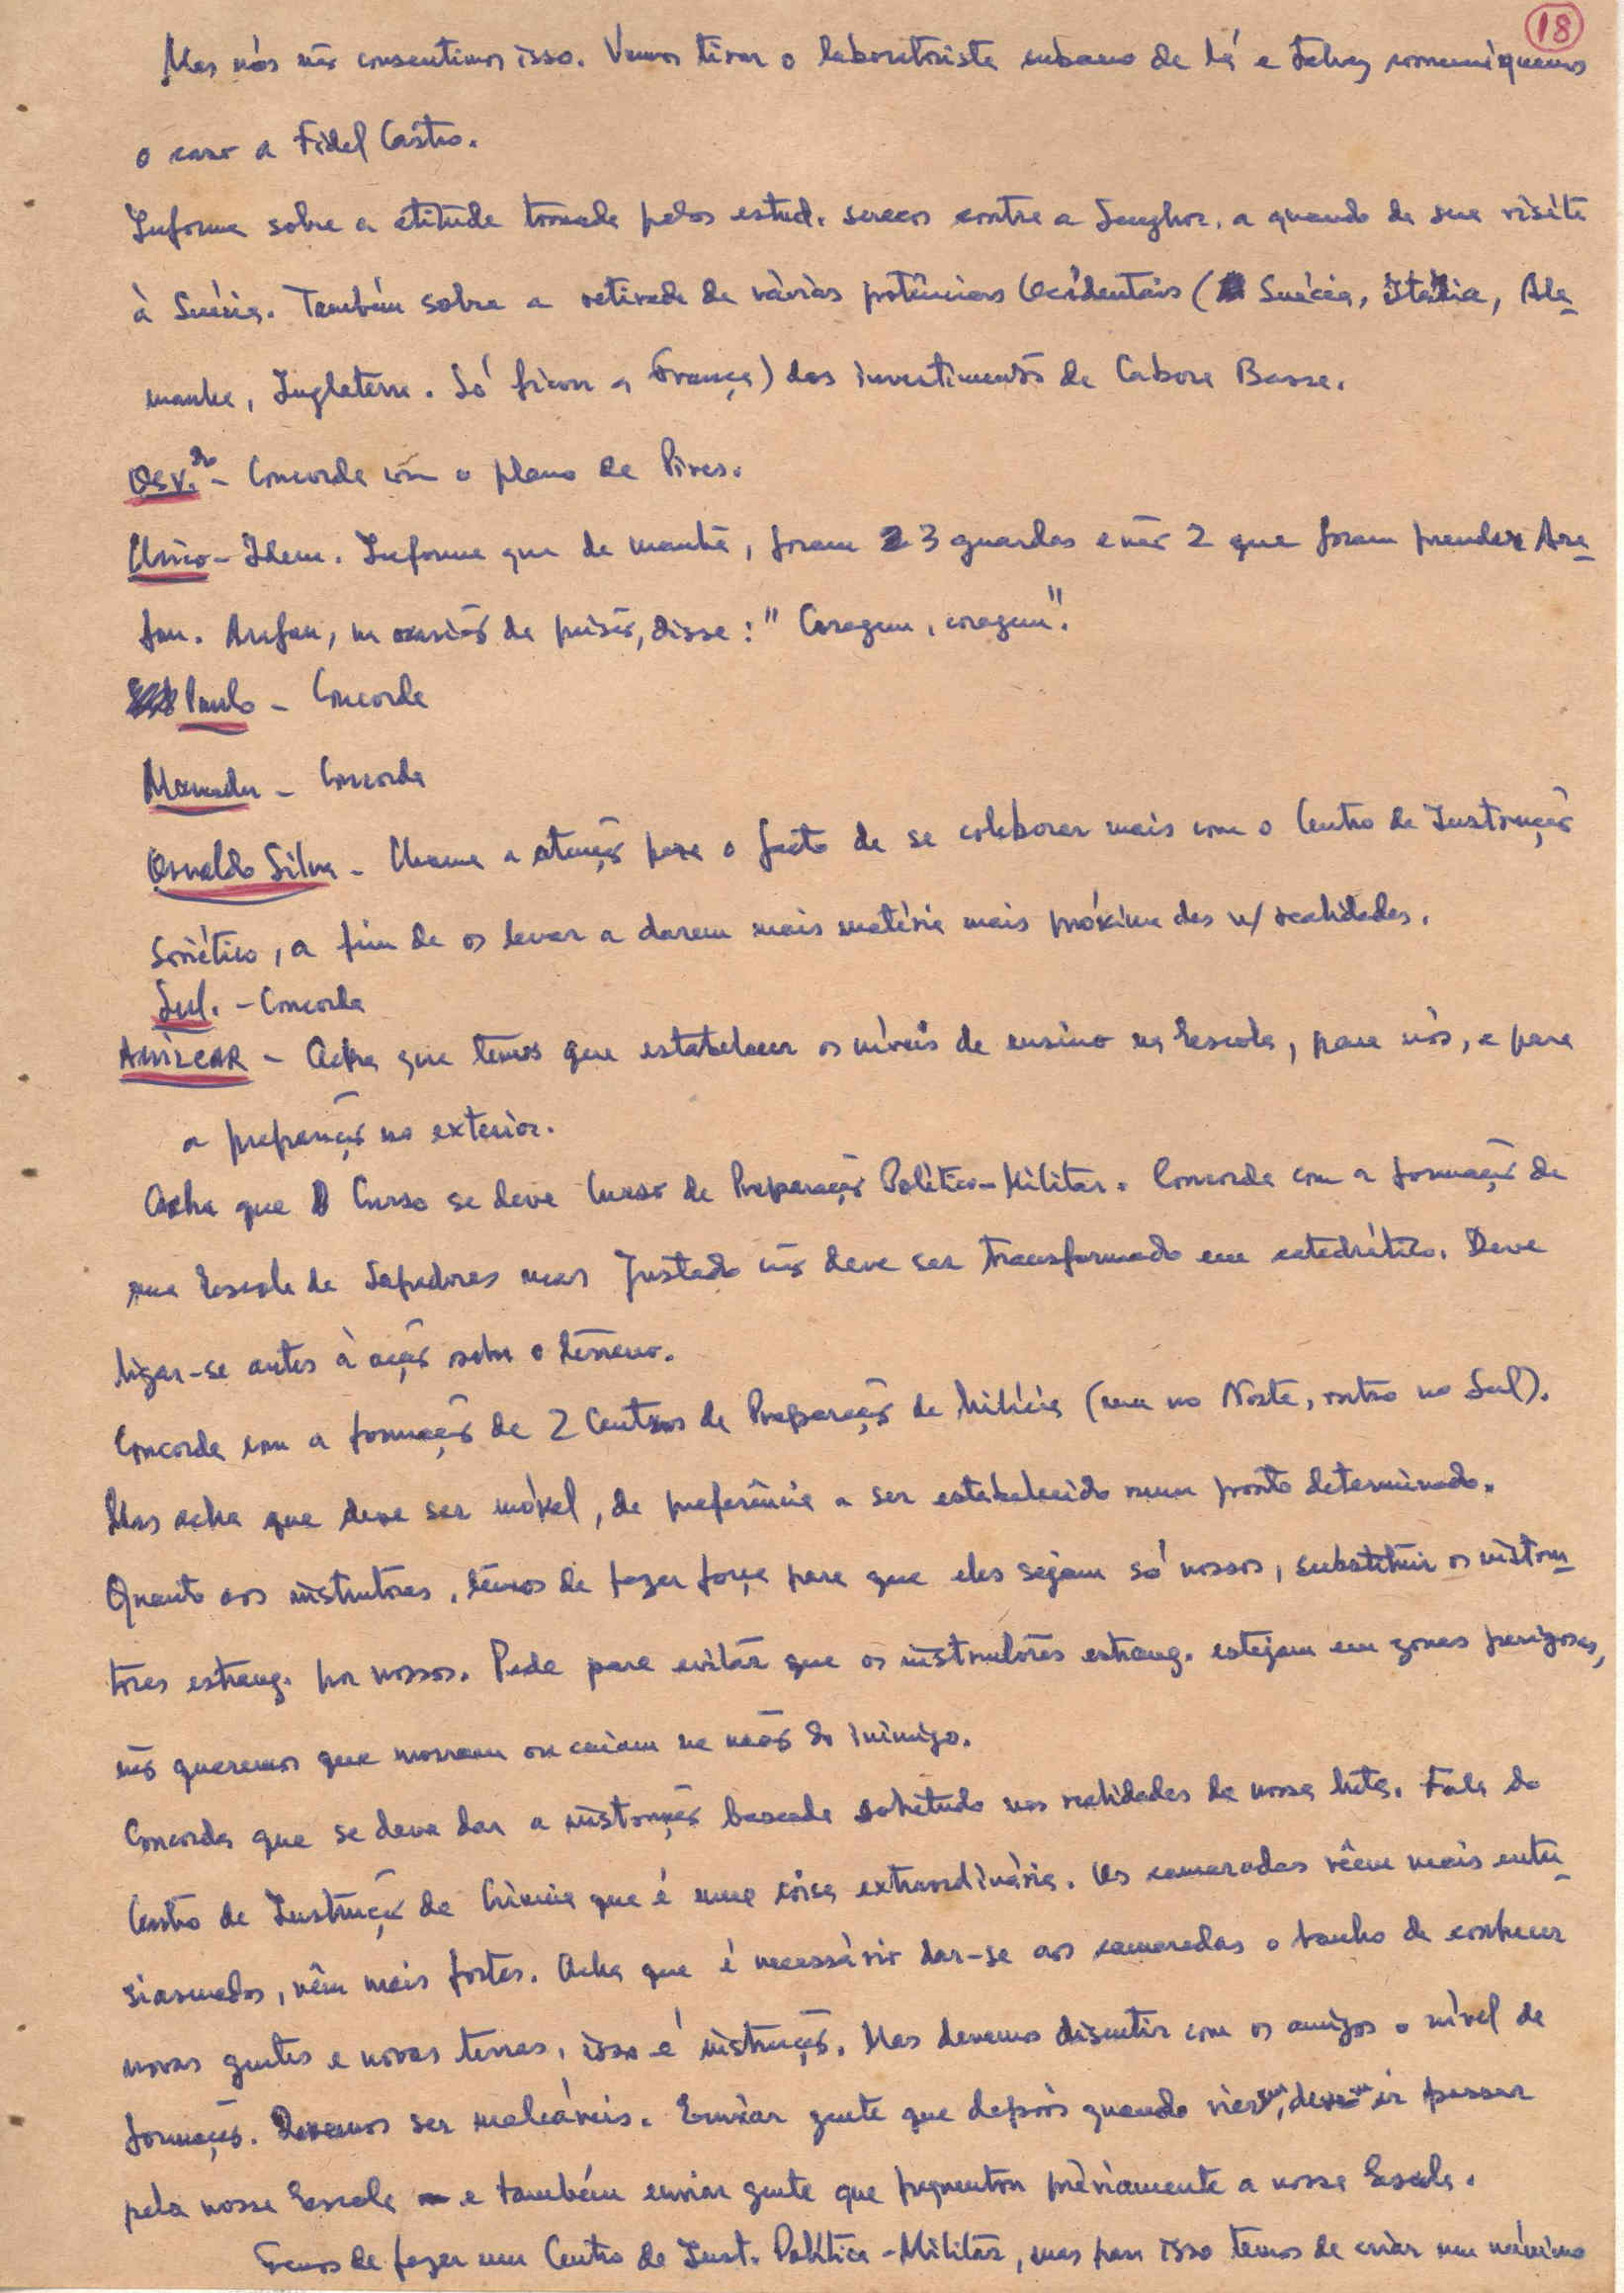 18
Mas nós não consentimos isso. Vamos tirar o laboratorista cubano de lá e talvez comuniquemos
o caso a Fidel Castro.
Informa sobre a atitude tomada pelos estud. suecos contra a Senghor, a quando da sua visita
à Suécia. Também sobre a retirada de várias potências Ocidentais (Suécia, Itália, Ale-
manha, Inglaterra. Só ficou a França) dos investimentos de Cabora Bassa.
Osv.do - Concorda com o plano de Pires.
Chico - Idem. Informa que de manhã, foram 3 guardas e não 2 que foram prender Ara-
fan. Arafan, na ocasião da prisão, disse: "Coragem, coragem".
Paulo - Concorda
Mamadu - Concorda
Osvaldo Silva - Chama a atenção para o facto de se colaborar mais com o Centro de Instrução
Soviético, a fim de os levar a darem mais matéria mais próxima das n/ realidades.
Sul. - Concorda
AMILCAR - Acha que temos que estabelecer os níveis de ensino na Escola, para nós, e para
a preparação no exterior.
Acha que o Curso se deve Curso de Preparação Político-Militar. Concorda com a formação de
uma Escola de Sapadores mas Justado não deve ser transformado em catedrático. Deve
ligar-se antes à ação sobre o terreno.
Concorda com a formação de 2 Centros de Preparação de Milícia (um no Norte, outro no Sul).
Mas acha que deve ser móvel, de preferência a ser estabelecido num ponto determinado.
Quanto aos instrutores, temos de fazer força para que eles sejam só nossos, substituir os instru-
tores estrang. por nossos. Pede para evitar que os instrutores estrang. estejam em zonas perigosas,
não queremos que morram ou caiam na mão do inimigo.
Concorda que se deve dar a instrução baseada sobretudo nas realidades da nossa luta. Fala do
Centro de Instrução da Crimeia que é uma coisa extraordinária. Os camaradas vêem mais entu-
siasmados, vêm mais fortes. Acha que é necessário dar-se aos camaradas o banho de conhecer
novas gentes e novas terras, isso é instrução. Mas devemos discutir com os amigos o nível de
formação. Devemos ser maleáveis. Enviar gente que depois quando vierem, devem ir passar
pela nossa Escola e também enviar gente que frequentou prèviamente a nossa Escola.
Temos de fazer um Centro de Inst. Política-Militar, mas para isso temos de criar um mínimo